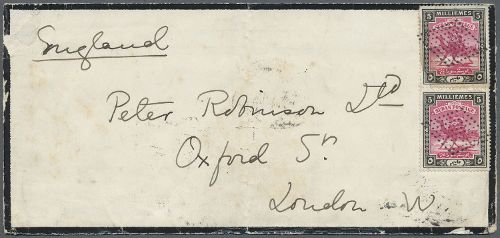 England
Peter Robinson Ltd
Oxford St
London W.
5 MILLIEMES 5
5 MILLIEMES 5